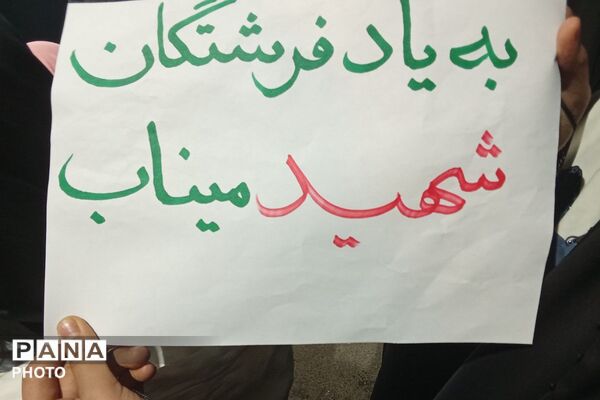 به یاد فرشتگان
شهید میناب
PANA
PHOTO